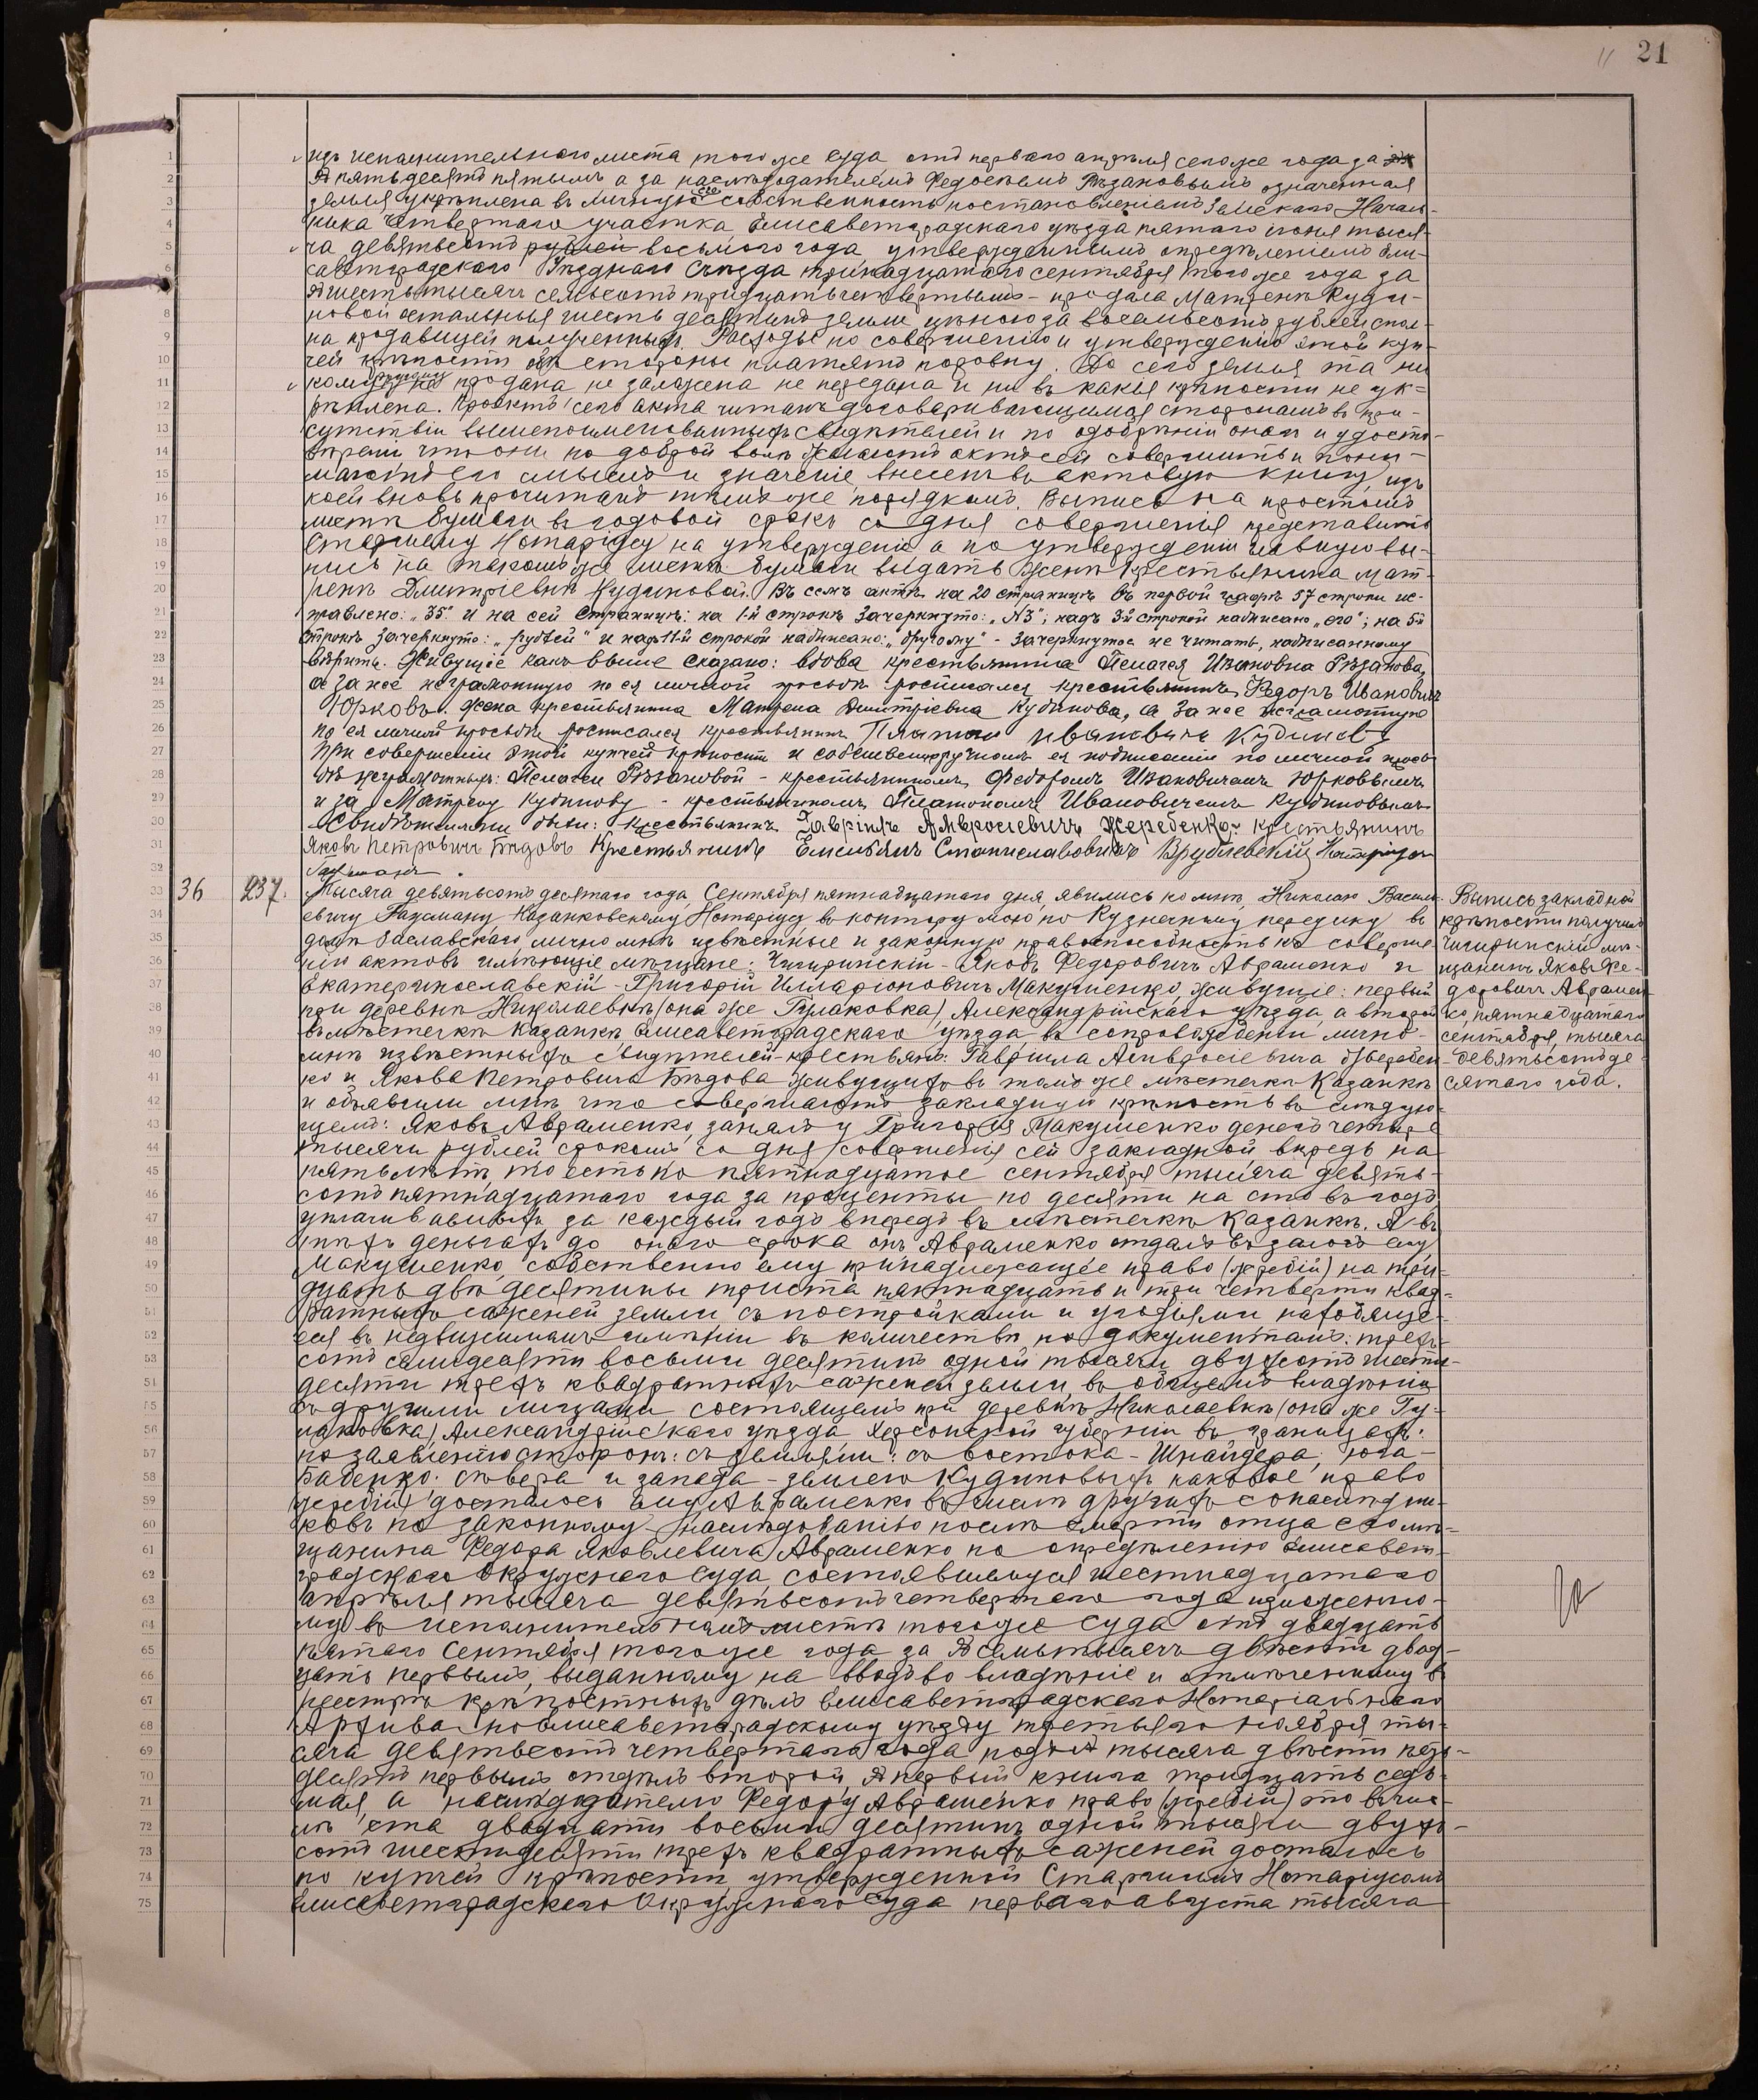 21
изъ исполнительнаго листа того же суда отъ перваго апрѣля сего же года за
№ пятьдесятъ пятымъ, а за наслѣдодателемъ Федосѣемъ Рѣзановымъ означенная
земля укрѣплена въ личную его собственность постановленіемъ Земскаго Началь-
ника четвертаго участка Елисаветградскаго уѣзда пятаго іюня тыся-
ча девятьсотъ рублей восьмого года, утвержденнымъ опредѣленіемъ Ели-
саветградскаго Уѣзднаго Съѣзда тринадцатаго сентября того же года за
№ шесть тысячъ семьсотъ тридцать четвертымъ – продала Матренѣ Куди-
новой остальныя шесть десятинъ земли цѣною за восемьсотъ рублей спол-
на продавицей полученныхъ. Расходы по совершенію и утвержденію этой куп-
чей крѣпости обѣ стороны платятъ поровну. До сего земля та ни
кому другому не продана не заложена не передана и ни въ какія крѣпости не ук-
рѣплена. Проектъ сего акта читанъ договаривающимся сторонамъ въ при-
сутствіи вышепоименованныхъ свидѣтелей и по одобреніи онаго и удосто-
вѣреніи что они по доброй волѣ желаютъ актъ сей совершить и пони-
маютъ его смыслъ и значеніе, внесенъ въ актовую книгу, изъ
коей вновь прочитанъ тѣмъ же порядкомъ. Выпись на простомъ
листѣ бумаги въ годовой срокъ со дня совершенія представить
Старшему Нотаріусу на утвержденіе, а по утвержденіи главную вы-
пись на таковомъ же листѣ бумаги выдать женѣ крестьянина Мат-
ренѣ Дмитріевнѣ Кудиновой. Въ семъ актѣ на 20 страницѣ въ первой графѣ 57 строки ис-
правлено: „35“ и на сей страницѣ: на 1-й строкѣ зачеркнуто: „№“; надъ 3й строкой надписано „его“; на 5й
строкѣ зачеркнуто: „рублей“ и надъ 11-й строкой надписано: „другому“ – зачеркнутое не читать, надписанному
вѣрить. Живущіе какъ выше сказано: вдова крестьянина Пелагея Ивановна Рѣзанова,
а за нее неграмотную по ея личной просьбѣ росписался крестьянинъ Федоръ Ивановичъ
Юрковъ. Жена крестьянина Матрена Дмитріевна Кудинова, а за нее неграмотную
по ея личной просьбѣ росписался крестьянинъ Платонъ Ивановичъ Кудиновъ
При совершеніи этой купчей крѣпости и собственноручномъ ея подписаніи по личной прось-
бѣ неграмотныхъ: Пелагеи Рѣзановой – крестьяниномъ Федоромъ Ивановичемъ Юрковымъ
и за Матрену Кудинову – крестьяниномъ Платономъ Ивановичемъ Кудиновымъ
Свидѣтелями были: Крестьянинъ Гавріилъ Амвросіевичъ Жеребенко. Крестьянинъ
Яковъ Петровичъ Бѣдовъ Крестьянинъ Емельянъ Станиславовичъ Врублевскій Нотаріусъ
36 237. Тысяча девятьсотъ десятаго года, Сентября пятнадцатаго дня, явились ко мнѣ, Николаю Василь-
евичу Гаусману Казанковскому Нотаріусу въ контору мою по Кузнечному переулку въ
домѣ Заславскаго, лично мнѣ извѣстные и законную правоспособность къ соверше-
нію актовъ имѣющіе мѣщане: Чигиринскій – Яковъ Федоровичъ Авраменко и
Екатеринославскій – Григорій Илларіоновичъ Макушенко, живущіе: первый
при деревнѣ Николаевкѣ (она же Гулаковка), Александрійскаго уѣзда, а второй
въ мѣстечкѣ Казанкѣ Елисаветградскаго уѣзда, въ сопровожденіи лично
мнѣ извѣстныхъ свидѣтелей – крестьянъ: Гавріила Амвросіевича Жеребен-
ко и Якова Петровича Бѣдова живущихъ въ томъ же мѣстечкѣ Казанкѣ
и объявили мнѣ, что совершаютъ закладную крѣпость въ слѣдую-
щемъ: Яковъ Авраменко, занялъ у Григорія Макушенко денегъ четыре
тысячи рублей срокомъ со дня совершенія сей закладной впредь на
пять лѣтъ, то есть по пятнадцатое сентября тысяча девять-
сотъ пятнадцатаго года за проценты по десяти на сто въ годъ
уплачиваемыхъ за каждый годъ впередъ въ мѣстечкѣ Казанкѣ. А въ
тѣхъ деньгахъ до онаго срока онъ Авраменко отдалъ въ залогъ ему
Макушенко, собственно ему принадлежащее право (жребій) на три-
дцать двѣ десятины триста пятнадцать и три четверти квад-
ратныхъ саженей земли съ постройками и угодьями находяще-
еся въ недвижимомъ имѣніи въ количествѣ, по документамъ: трех-
сотъ семидесяти восьми десятинъ одной тысячи двухсотъ шести-
десяти трехъ квадратныхъ саженей земли, въ общемъ владѣніи
съ другими лицами состоящемъ при деревнѣ Николаевкѣ (она же Гу-
лаковка) Александрійскаго уѣзда Херсонской губерніи въ границахъ:
по заявленію сторонъ: съ землями: съ востока – Шнайдера, юга –
Бабенко: сѣвера и запада – землею Кудиновыхъ каковое право
(жребій) досталось ему Авраменко въ числѣ другихъ сонаслѣдни-
ковъ по законному наслѣдованію послѣ смерти отца его мѣ-
щанина Федора Яковлевича Авраменко по опредѣленію Елисавет-
градскаго Окружнаго Суда, состоявшемуся шестнадцатаго
апрѣля тысяча девятьсотъ четвертаго года изложенно-
му въ исполнительномъ листѣ того же суда отъ двадцать
пятаго Сентября того же года за № семь тысячъ двѣсти двад-
цать первымъ, выданному на вводъ во владѣніе и отмѣченному въ
реестрѣ крѣпостныхъ дѣлъ Елисаветградскаго Нотаріальнаго
Архива по Елисаветградскому уѣзду третьяго ноября ты-
сяча девятьсотъ четвертаго года подъ № тысяча двѣсти пять-
десятъ первымъ отдѣлъ второй, № первый книга тридцать седь-
мая, а наслѣдодателю Федору Авраменко право (жребій) это въ чис-
лѣ ста двадцати восьми десятинъ одной тысячи двухъ-
сотъ шестидесяти трехъ квадратныхъ саженей досталось
по купчей крѣпости, утвержденной Старшимъ Нотаріусомъ
Елисаветградскаго Окружнаго Суда перваго августа тысяча
Выпись закладной
крѣпости получилъ
Чигиринскій мѣ-
щанинъ Яковъ Фе-
доровичъ Аврамен-
ко, пятнадцатаго
сентября, тысяча
девятьсотъ де-
сятаго года.